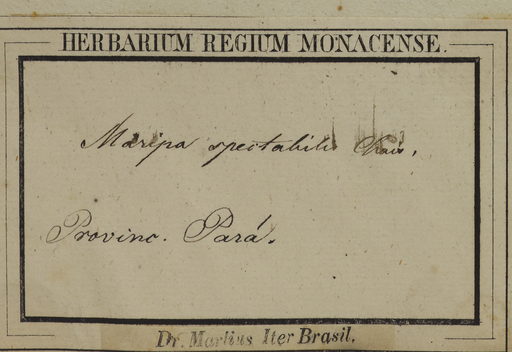 HERBARIUM REGIUM MONACENSE.
Maripa spectabilis Chois.
Provinc. Pará.
Dr. Martius Iter Brasil.